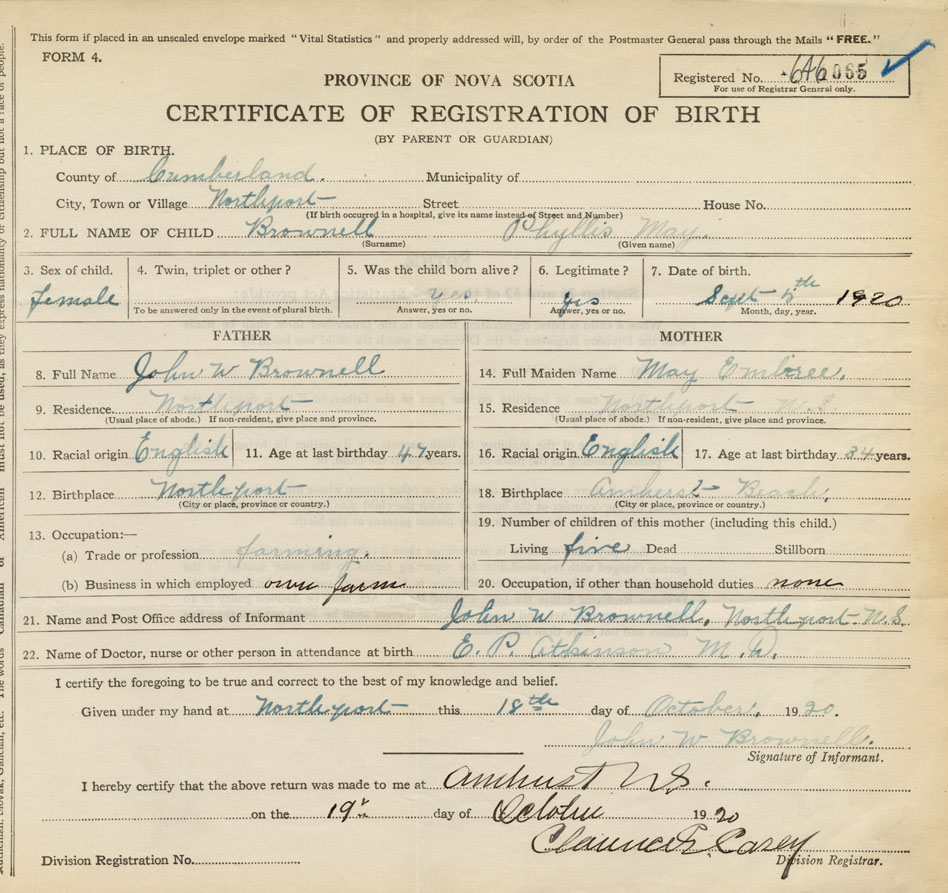 This form if placed in an unsealed envelope marked "Vital Statistics" and properly addressed will, by order of the Postmaster General pass through the Mails "FREE."
FORM 4.
Registered No. 065
For use of Registrar General only.
PROVINCE OF NOVA SCOTIA
CERTIFICATE OF REGISTRATION OF BIRTH
(BY PARENT OR GUARDIAN)
1. PLACE OF BIRTH.
County of Cumberland. Municipality of
City, Town or Village Northport Street House No.
(If birth occurred in a hospital, give its name instead of Street and Number)
2. FULL NAME OF CHILD Brownell Phyllis May.
(Surname) (Given name)
3. Sex of child. 4. Twin, triplet or other? 5. Was the child born alive? 6. Legitimate? 7. Date of birth.
female yes yes Sept th 1920
To be answered only in the event of plural birth. Answer, yes or no. Answer, yes or no. Month, day, year.
FATHER MOTHER
8. Full Name John W Brownell 14. Full Maiden Name May Embree.
9. Residence. Northport 15. Residence Northport N.S.
(Usual place of abode.) If non-resident, give place and province. (Usual place of abode.) If non-resident, give place and province.
10. Racial origin English 11. Age at last birthday 47 years. 16. Racial origin English 17. Age at last birthday 34 years.
12. Birthplace Northport 18. Birthplace Amherst Beach.
(City or place, province or country.) (City or place, province or country.)
13. Occupation:— 19. Number of children of this mother (including this child.)
(a) Trade or profession farming. Living five Dead Stillborn
(b) Business in which employed own farm 20. Occupation, if other than household duties none
21. Name and Post Office address of Informant John W Brownell, Northport N.S.
22. Name of Doctor, nurse or other person in attendance at birth E. P. Atkinson M.D.
I certify the foregoing to be true and correct to the best of my knowledge and belief.
Given under my hand at Northport this 18th day of October, 1920.
John W Brownell.
Signature of Informant.
I hereby certify that the above return was made to me at Amherst N.S.
on the 19 day of October 1920
Clarence E. Casey
Division Registration No. Division Registrar.